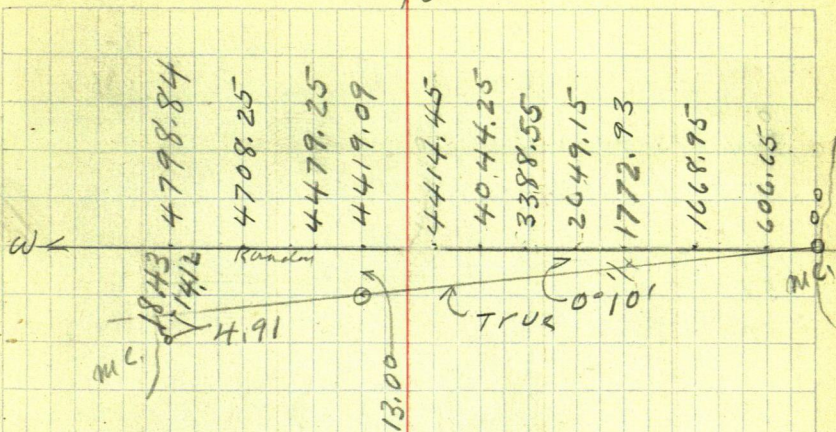 4798.84
4708.25
4479.25
4419.09
4414.45
4044.25
3388.55
2649.15
1772.93
1668.95
606.65
000
W
Random
M C.
18.43
14.12
4.91
True
0°10'
M C.
13.00